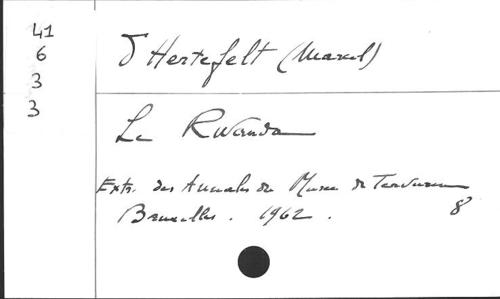 41
6
3
3
d'Hertefelt (Marcel)
Le Rwanda
Extr. des Annales du Musée de Tervuren
Bruxelles. 1962. 8°